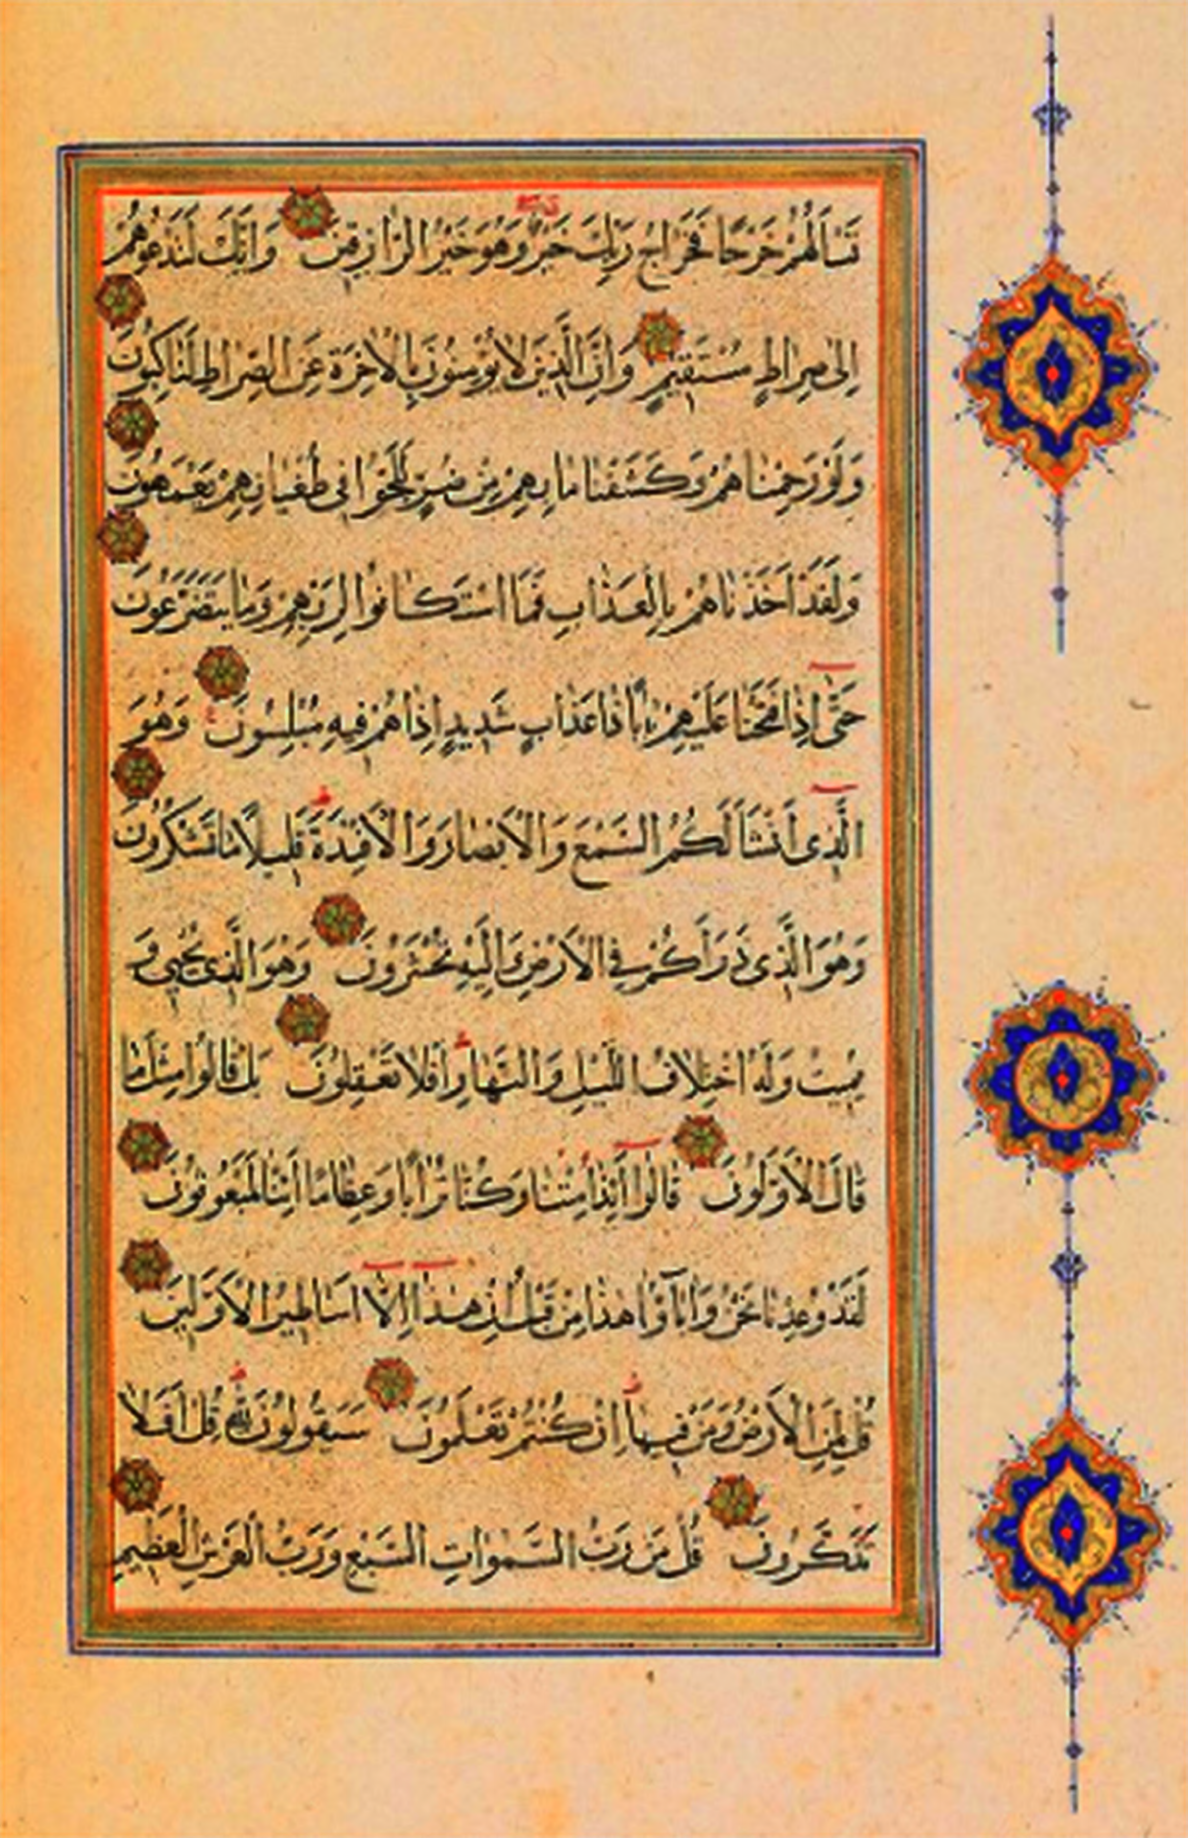 تَسْأَلُهُمْ خَرْجًا فَخَرَاجُ رَبِّكَ خَيْرٌ وَهُوَ خَيْرُ الرَّازِقِينَ وَاِنَّكَ لَتَدْعُوهُمْ
اِلٰى صِرَاطٍ مُسْتَقِيمٍ وَاِنَّ الَّذِينَ لَا يُؤْمِنُونَ بِالْاٰخِرَةِ عَنِ الصِّرَاطِ لَنَاكِبُونَ
وَلَوْ رَحِمْنَاهُمْ وَكَشَفْنَا مَا بِهِمْ مِنْ ضُرٍّ لَلَجُّوا فِى طُغْيَانِهِمْ يَعْمَهُونَ
وَلَقَدْ اَخَذْنَاهُمْ بِالْعَذَابِ فَمَا اسْتَكَانُوا لِرَبِّهِمْ وَمَا يَتَضَرَّعُونَ
حَتّٰى اِذَا فَتَحْنَا عَلَيْهِمْ بَابًا ذَا عَذَابٍ شَدِيدٍ اِذَا هُمْ فِيهِ مُبْلِسُونَ وَهُوَ
الَّذِى اَنْشَاَ لَكُمُ السَّمْعَ وَالْاَبْصَارَ وَالْاَفْئِدَةَ قَلِيلًا مَا تَشْكُرُونَ
وَهُوَ الَّذِى ذَرَاَكُمْ فِى الْاَرْضِ وَاِلَيْهِ تُحْشَرُونَ وَهُوَ الَّذِى يُحْيِى وَ
يُمِيتُ وَلَهُ اخْتِلَافُ اللَّيْلِ وَالنَّهَارِ اَفَلَا تَعْقِلُونَ بَلْ قَالُوا مِثْلَ مَا
قَالَ الْاَوَّلُونَ قَالُوا اَئِذَا مِتْنَا وَكُنَّا تُرَابًا وَعِظَامًا اَئِنَّا لَمَبْعُوثُونَ
لَقَدْ وُعِدْنَا نَحْنُ وَاٰبَاؤُنَا هٰذَا مِنْ قَبْلُ اِنْ هٰذَا اِلَّا اَسَاطِيرُ الْاَوَّلِينَ
قُلْ لِمَنِ الْاَرْضُ وَمَنْ فِيهَا اِنْ كُنْتُمْ تَعْلَمُونَ سَيَقُولُونَ لِلّٰهِ قُلْ اَفَلَا
تَذَكَّرُونَ قُلْ مَنْ رَبُّ السَّمٰوَاتِ السَّبْعِ وَرَبُّ الْعَرْشِ الْعَظِيمِ